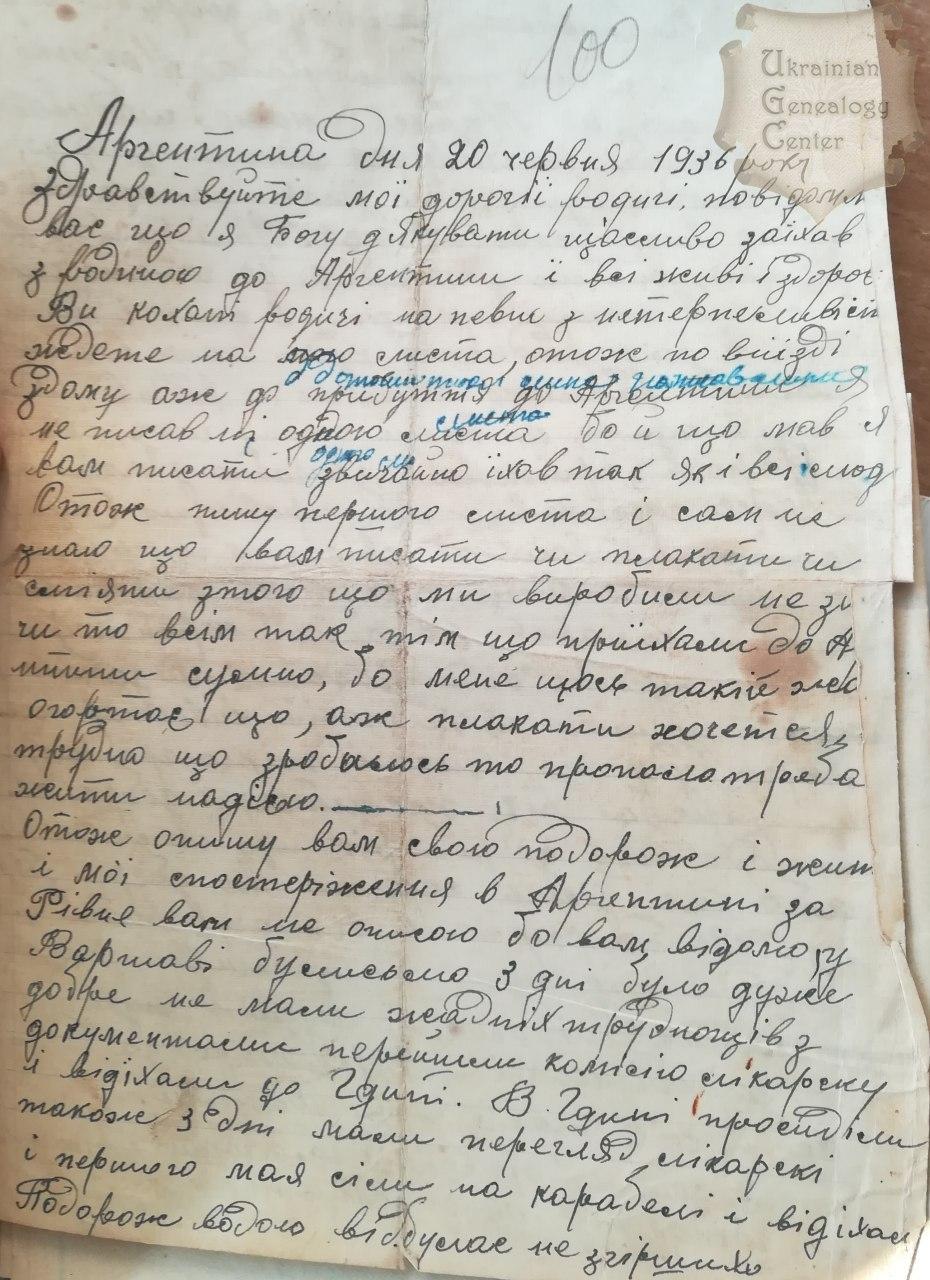 100
Ukrainian
Genealogy
Center
Аргентина дня 20 червня 1936 року
Здравствуйте мої дорогії родичі, повідомл
вас що я Богу дякувати щасливо заїхав
з родиною до Аргентини і всі живі і здоров
Ви кохані родичі на певне з нетерпеливіст
ждете на мого листа, отож по виїзді
здому аж до прибуття до Аргентини я
не писав ні одного листа бо й що мав я
вам писати звичайно їхав так як і всі люд
Отож пишу першого листа і сам не
знаю що вам писати чи плакати чи
сміяти зтого що ми виробили не зн
чи то всім так тім що приїхали до А
нтини сумно, бо мене щось такій жа
огортає що, аж плакати хочется,
трудно що зробилось то пропала треба
жити надією.
Отож опишу вам свою подорож і жит
і мої спостеріження в Аргентині за
Рівне вам не описою бо вам відомо, у
Варшаві булисьмо 3 дні було дуже
добре не мали жадніх трудношців з
документами перейшли комісію лікарску
і відїхали до Гдині. В Гдині просиділи
також 3 дні мали перегляд лікарскі
і першого мая сіли на карабелі і відїхали
Подорож водою відбулас не згіршихо